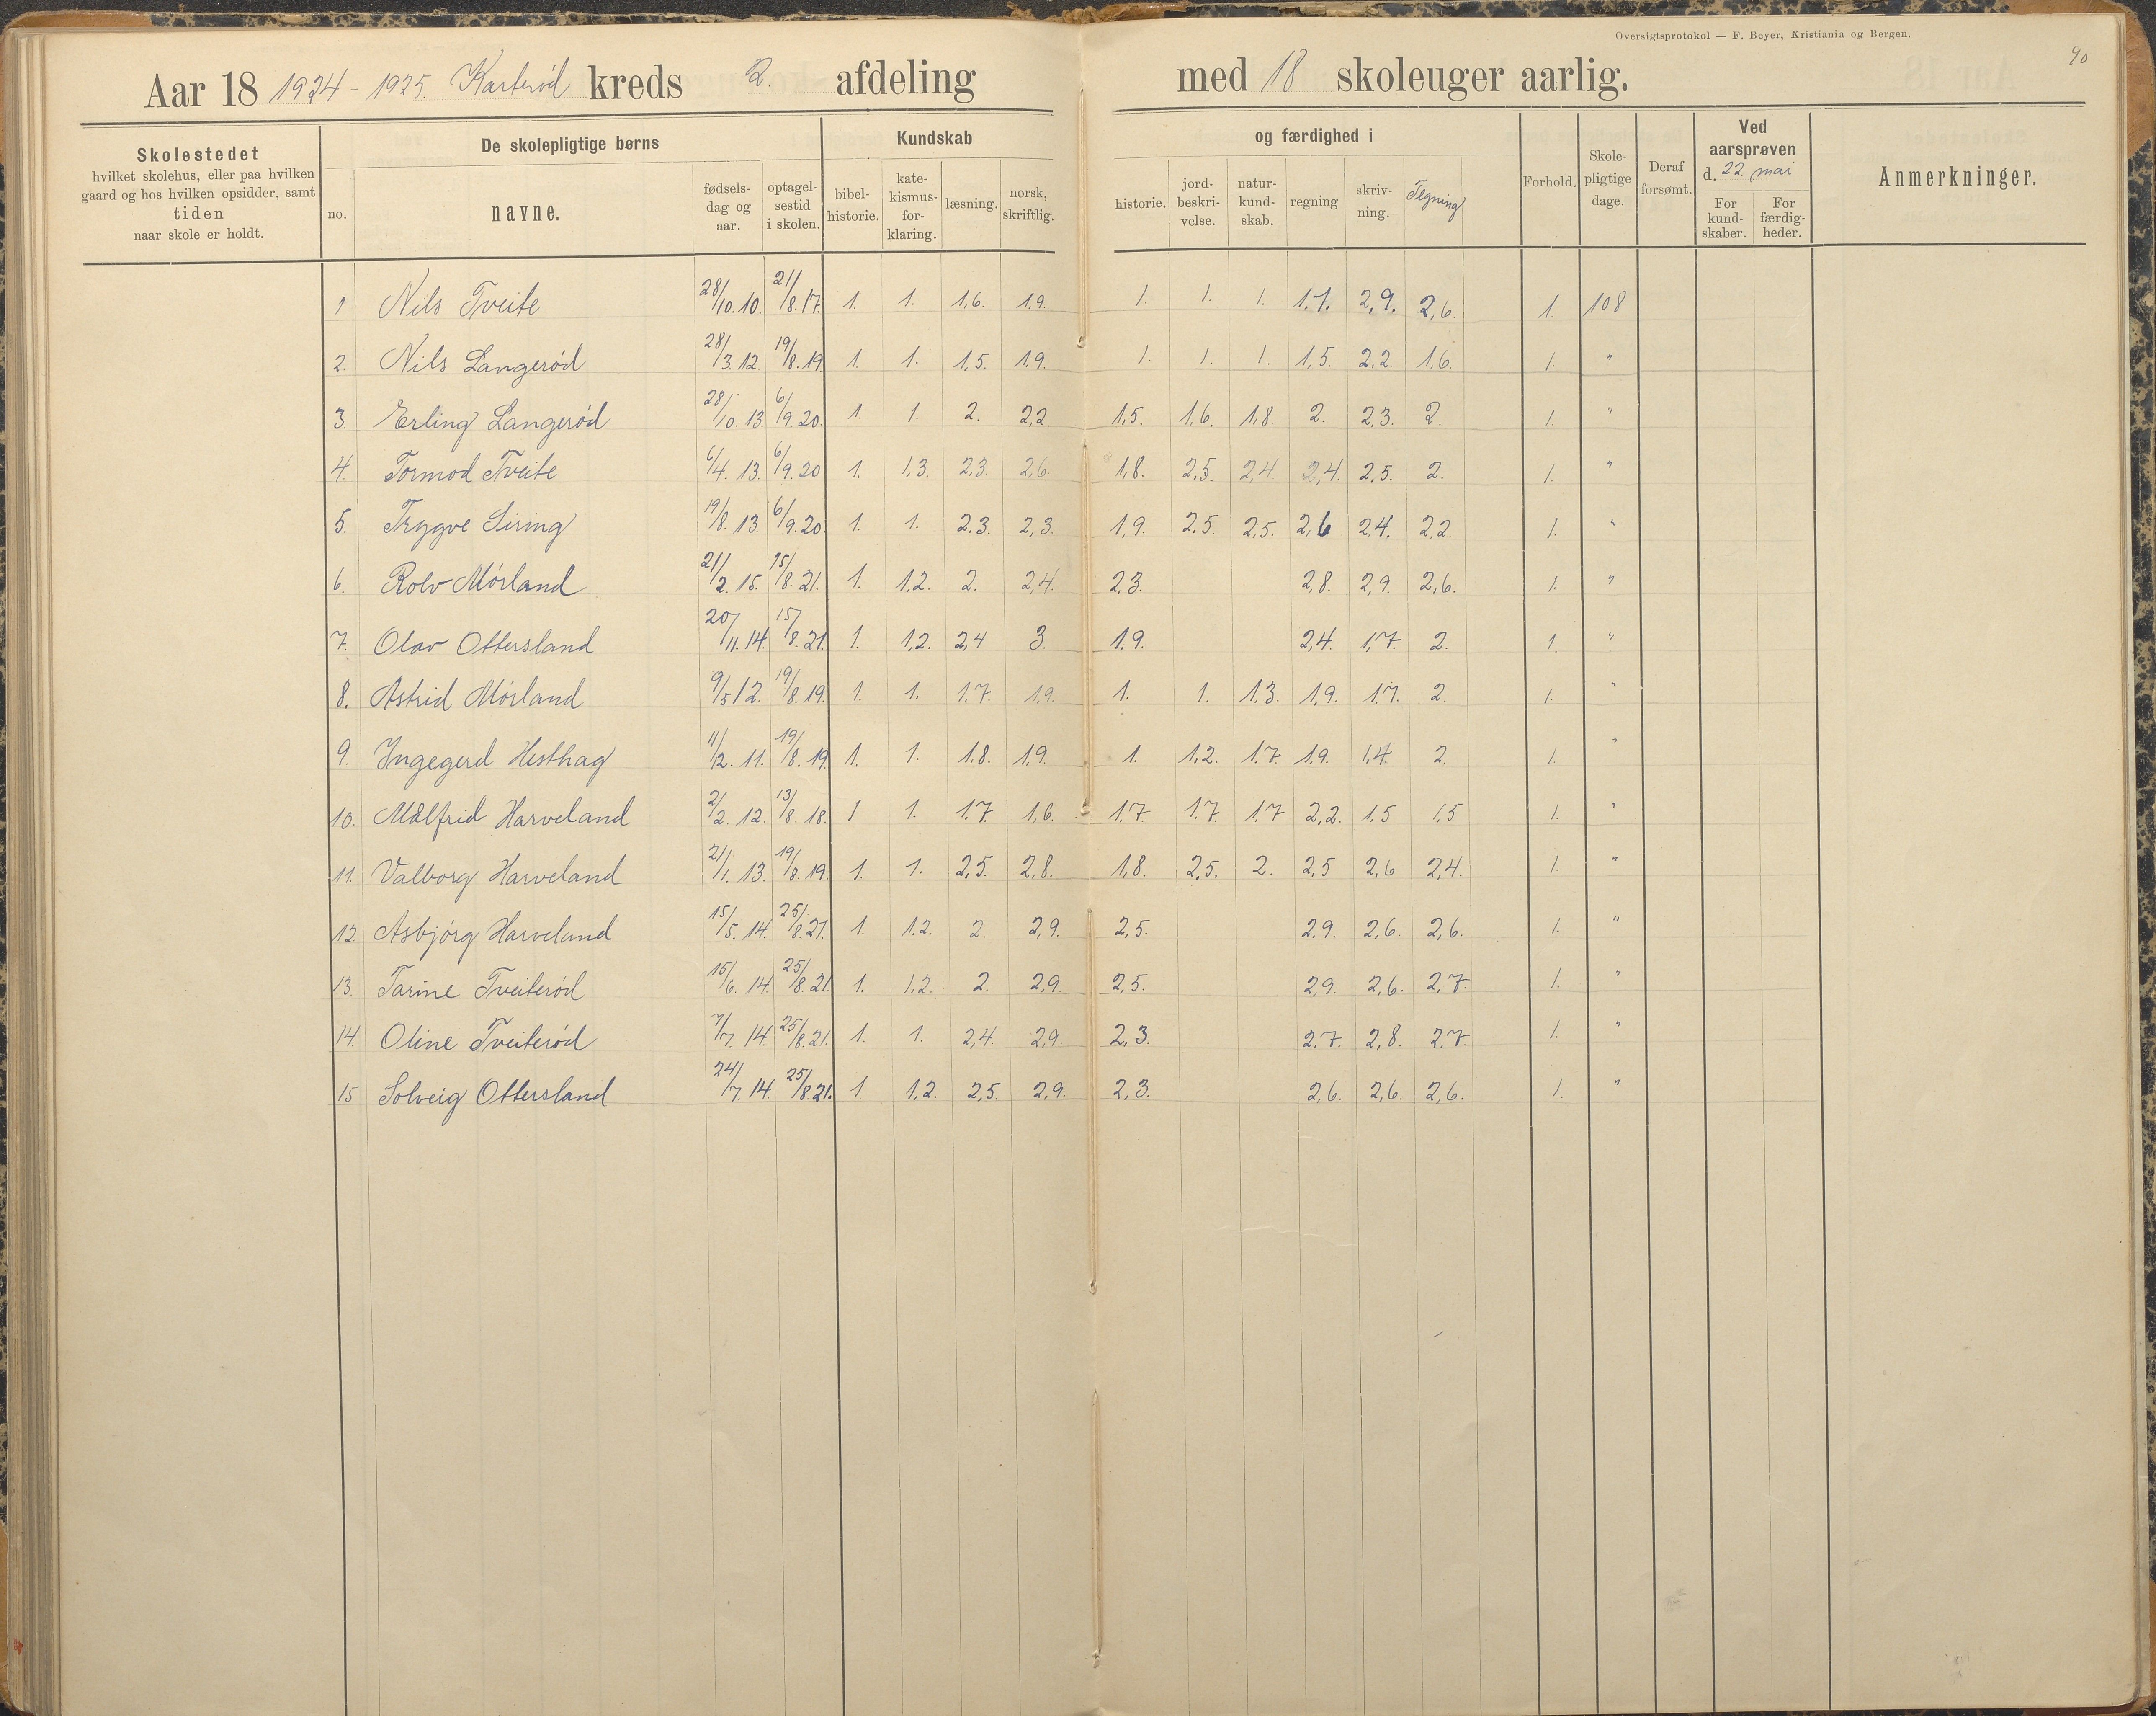 Oversigtsprotokol — F. Beyer, Kristiania og Bergen.
90
Aar 18 1924 - 1925. Karterød kreds 2. afdeling med 18 skoleuger aarlig.
Skolestedet hvilket skolehus, eller paa hvilken gaard og hos hvilken opsidder, samt tiden naar skole er holdt.
De skolepligtige børns
no. navne. fødselsdag og aar. optagelsestid i skolen.
Kundskab og færdighed i
bibelhistorie. katekismusforklaring. læsning. norsk, skriftlig. historie. jordbeskrivelse. naturkundskab. regning skrivning. Tegning
Forhold. Skolepligtige dage. Deraf forsømt.
Ved aarsprøven d. 22 mai
For kundskaber. For færdigheder.
Anmerkninger.
1 Nils Tveite 28/10.10. 21/8.17. 1. 1. 1,6. 1,9. 1. 1. 1. 1.7. 2,9. 2,6. 1. 108
2. Nils Langerød 28/3.12. 19/8.19 1. 1. 1,5. 1,9. 1. 1. 1. 1,5. 2,2. 1,6. 1. "
3. Erling Langerød 28/10.13. 6/9.20. 1. 1. 2. 2,2. 1,5. 1,6. 1,8. 2. 2,3. 2. 1. "
4. Tormod Tveite 6/4.13. 6/9.20 1. 1,3. 2,3. 2,6. 1,8. 2,5. 2,4. 2,4. 2,5. 2. 1. "
5. Trygve Siring 19/8.13. 6/9.20. 1. 1. 2.3. 2,3. 1,9. 2.5. 2,5. 2,6 2,4. 2,2. 1. "
6. Rolv Mørland 21/2.15. 15/8.21. 1. 1,2. 2. 2,4. 2,3. 2,8. 2,9. 2,6. 1. "
7. Olav Ottersland 20/11.14. 15/8.21. 1. 1,2. 2,4 3. 1,9. 2,4. 1,7. 2. 1. "
8. Astrid Mørland 9/5 12. 19/8.19. 1. 1. 1.7. 1,9. 1. 1. 1.3. 1,9. 1.7. 2. 1. "
9. Ingegerd Hesthag 11/12.11. 19/8.19. 1. 1. 1,8. 1,9. 1. 1,2. 1.7. 1.9. 1,4. 2. 1. "
10. Målfrid Harveland 2/2.12. 13/8.18. 1 1. 1.7. 1,6. 1.7. 1.7. 1.7 2,2. 1.5 1.5 1. "
11. Valborg Harveland 21/1.13. 19/8.19. 1. 1. 2,5. 2,8. 1,8. 2,5. 2. 2,5 2,6 2,4. 1. "
12. Asbjørg Harveland 15/5.14. 25/8.21. 1. 1.2. 2. 2,9. 2,5. 2.9. 2,6. 2,6. 1. "
13. Tarine Tveiterød 15/6.14. 25/8.21. 1. 1,2. 2. 2,9. 2,5. 2,9. 2,6. 2,7. 1. "
14. Oline Tveiterød 7/7.14. 25/8.21. 1. 1. 2,4. 2,9. 2,3. 2.7. 2,8. 2.7. 1. "
15 Solveig Ottersland 24/7.14. 25/8.21. 1. 1,2. 2,5. 2,9. 2,3. 2,6. 2,6. 2,6. 1. "